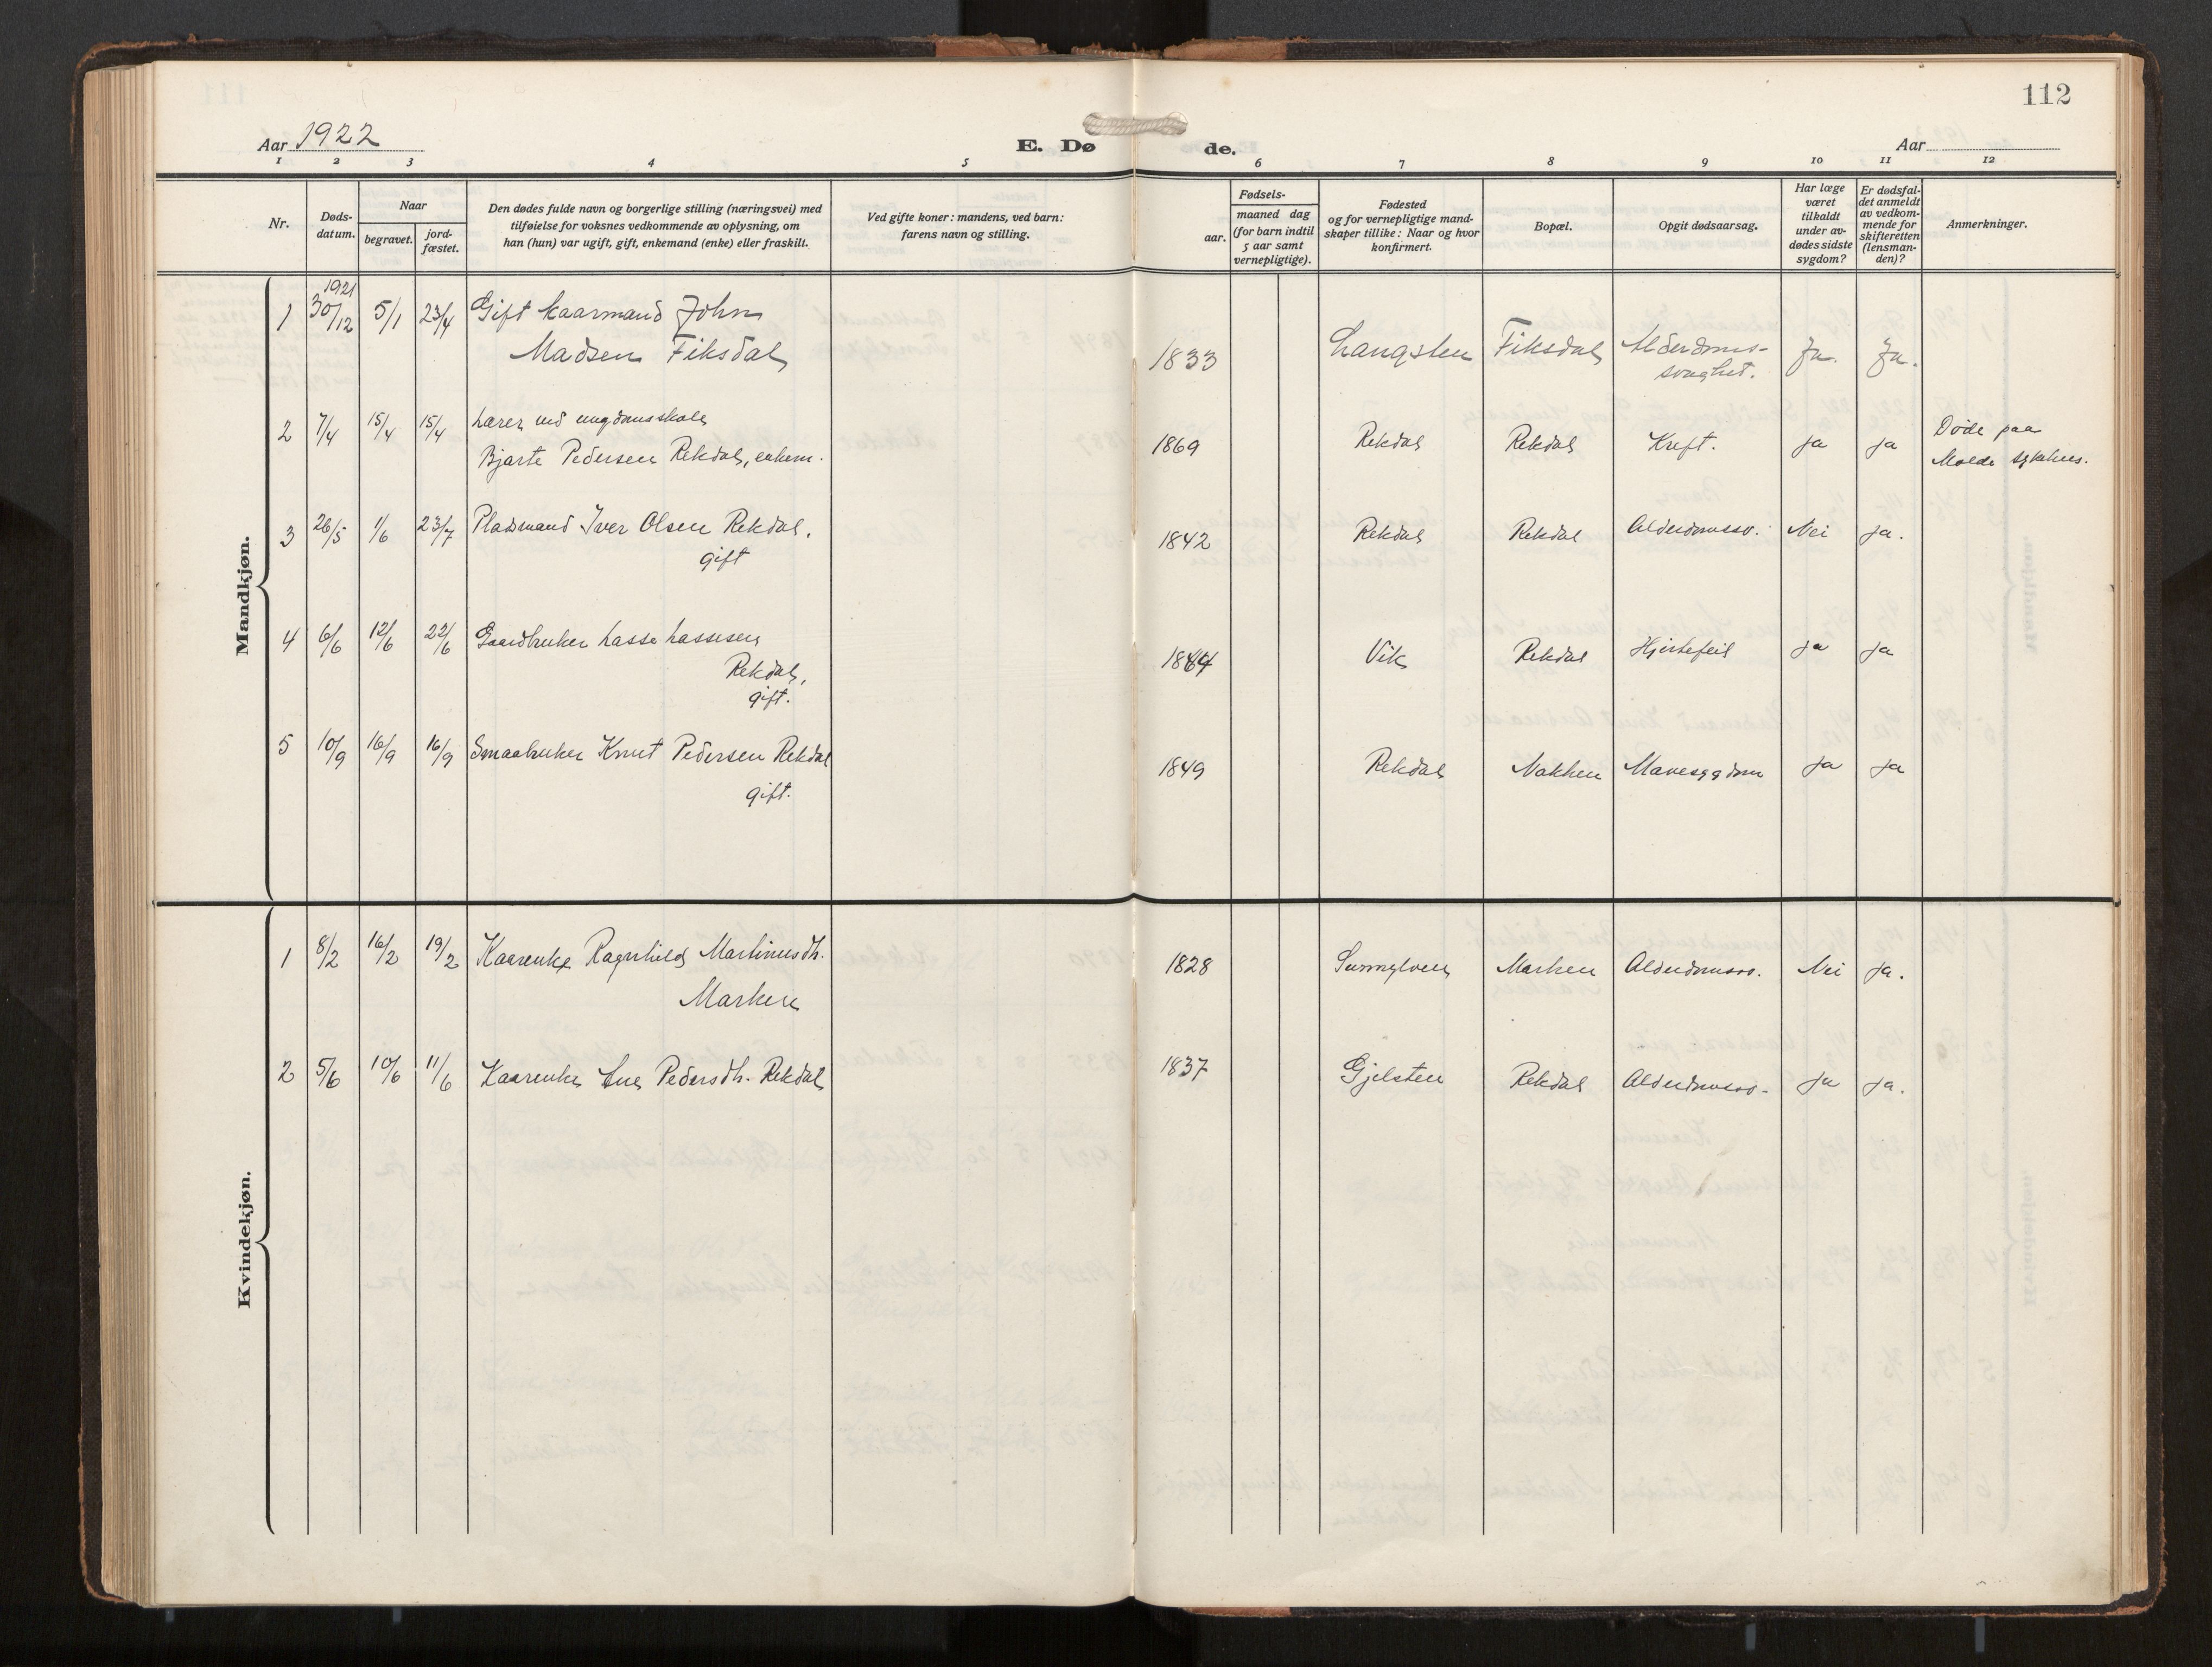 112
Aar 1922
E. Dø de.
Aar
1 2 3 4 5 6 7 8 9 10 11 12
Nr.
Døds-
datum.
Naar
begravet.
jord-
fæstet.
Den dødes fulde navn og borgerlige stilling (næringsvei) med
tilføielse for voksnes vedkommende av oplysning, om
han (hun) var ugift, gift, enkemand (enke) eller fraskilt.
Ved gifte koner: mandens, ved barn:
farens navn og stilling.
Fødsels-
aar.
maaned dag
(for barn indtil
5 aar samt
vernepligtige).
Fødested
og for vernepligtige mand-
skaper tillike: Naar og hvor
konfirmert.
Bopæl.
Opgit dødsaarsag.
Har læge
været
tilkaldt
under av-
dødes sidste
sygdom?
Er dødsfal-
det anmeldt
av vedkom-
mende for
skifteretten
(lensman-
den)?
Anmerkninger.
Mandkjøn.
1921
1 30/12 5/1 23/4 Gift kaarmand John
Madsen Fiksdal 1833 Langsten Fiksdal Alderdoms-
svaghet. Ja. Ja.
2 7/4 15/4 15/4 Lærer ved ungdomsskole
Bjarte Pedersen Rekdal, enkem. 1869 Rekdal Rekdal Kreft. ja ja Døde paa
Molde sykehus.
3 26/5 1/6 23/7 Pladsmand Iver Olsen Rekdal.
gift 1842 Rekdal Rekdal Alderdomssv. Nei ja.
4 6/6 12/6 22/6 Gaardbruker Lasse Lassesen
Rekdal,
gift. Vik Rekdal Hjertefeil ja ja
5 10/9 16/9 16/9 Smaabruker Knut Pedersen Rekdal
gift. 1849 Rekdal Nakken Mavesygdom ja ja
Kvindekjøn.
1 8/2 16/2 19/2 Kaarenke Ragnhild Martinusdh.
Marken 1828 Sunnylven Marken Alderdomssv. Nei ja.
2 5/6 10/6 11/6 Kaarenke Pedersdh. Rekdal 1837 Gjelsten Rekdal Alderdomssv. ja ja.